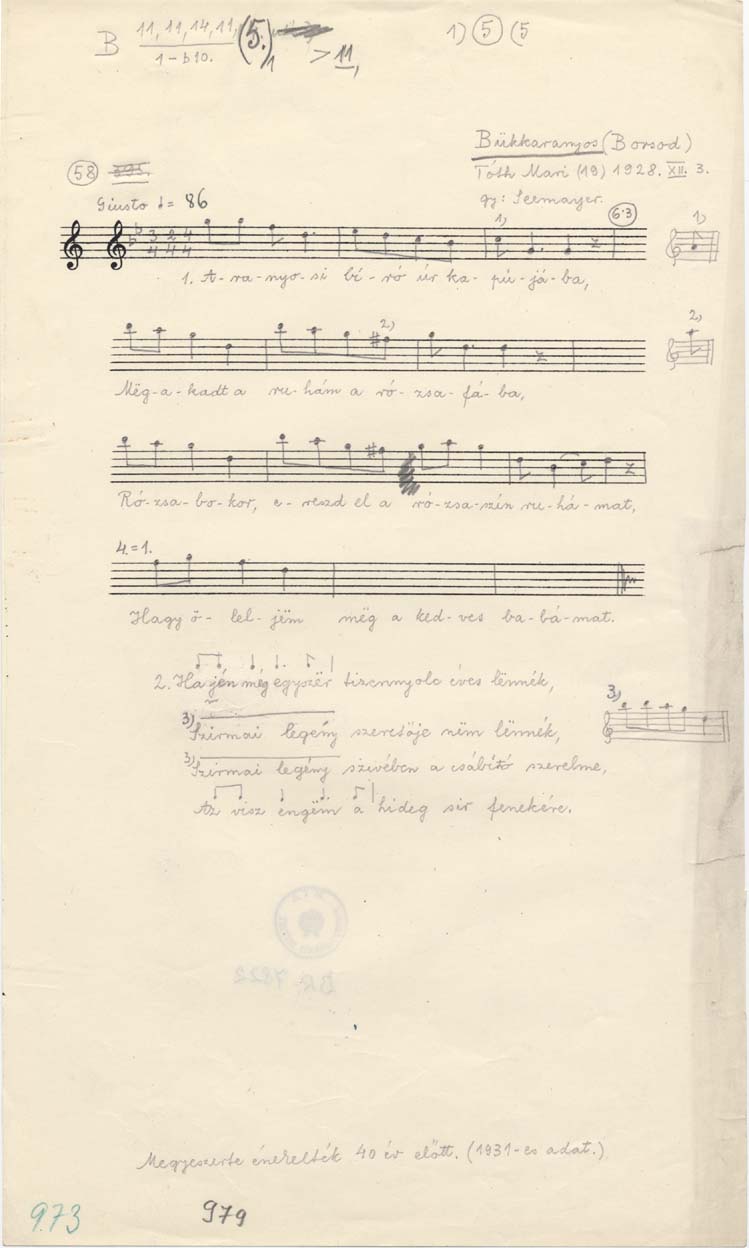 B 11, 11, 14, 11, (5.)
1 – b10. 1 > 11,
1) (5) (5
Bükkaranyos (Borsod)
Tóth Mari (19) 1928. XII. 3.
gy: Seemayer.
58 395.
Giusto ♩= 86
6·3
3 2 4
4 4 4
1) 1)
1. A-ra-nyo-si bí-ró úr ka-pú-já-ba,
2) 2)
Mëg-a-kadt a ru-hám a ró-zsa-fá-ba,
Ró-zsa-bo-kor, e-reszd el a ró-zsa-szín ru-há-mat,
4. = 1.
Hagy ö-lel-jëm még a ked-ves ba-bá-mat.
2. Ha jén még egyszër tizennyolc éves lënnék,
3)
3) Szirmai legény szeretője nëm lënnék,
3) Szirmai legény szivében a csábító szerelme,
Az visz engëm a hideg sir fenekére.
BR 7822
Megyeszerte énekelték 40 év előtt. (1931-es adat.)
973 979